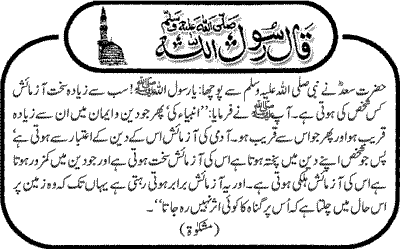 قال رسول اللہ صلی اللہ علیہ وسلم
حضرت سعدؓ نے نبی صلی اللہ علیہ وسلم سے پوچھا: یا رسول اللہ ﷺ! سب سے زیادہ سخت آزمائش
کس شخص کی ہوتی ہے۔ آپ ﷺ نے فرمایا: ’’انبیاء کی‘ پھر جو دین و ایمان میں ان سے زیادہ
قریب ہو اور پھر جو اس سے قریب ہو۔ آدمی کی آزمائش اس کے دین کے اعتبار سے ہوتی ہے‘
پس جو شخص اپنے دین میں پختہ ہوتا ہے اس کی آزمائش سخت ہوتی ہے اور جو دین میں کمزور ہوتا
ہے اس کی آزمائش ہلکی ہوتی ہے۔ اور یہ آزمائش برابر ہوتی رہتی ہے یہاں تک کہ وہ زمین پر
اس حال میں چلتا ہے کہ اُس پر گناہ کا کوئی اثر نہیں رہ جاتا‘‘۔
(مشکوٰۃ)